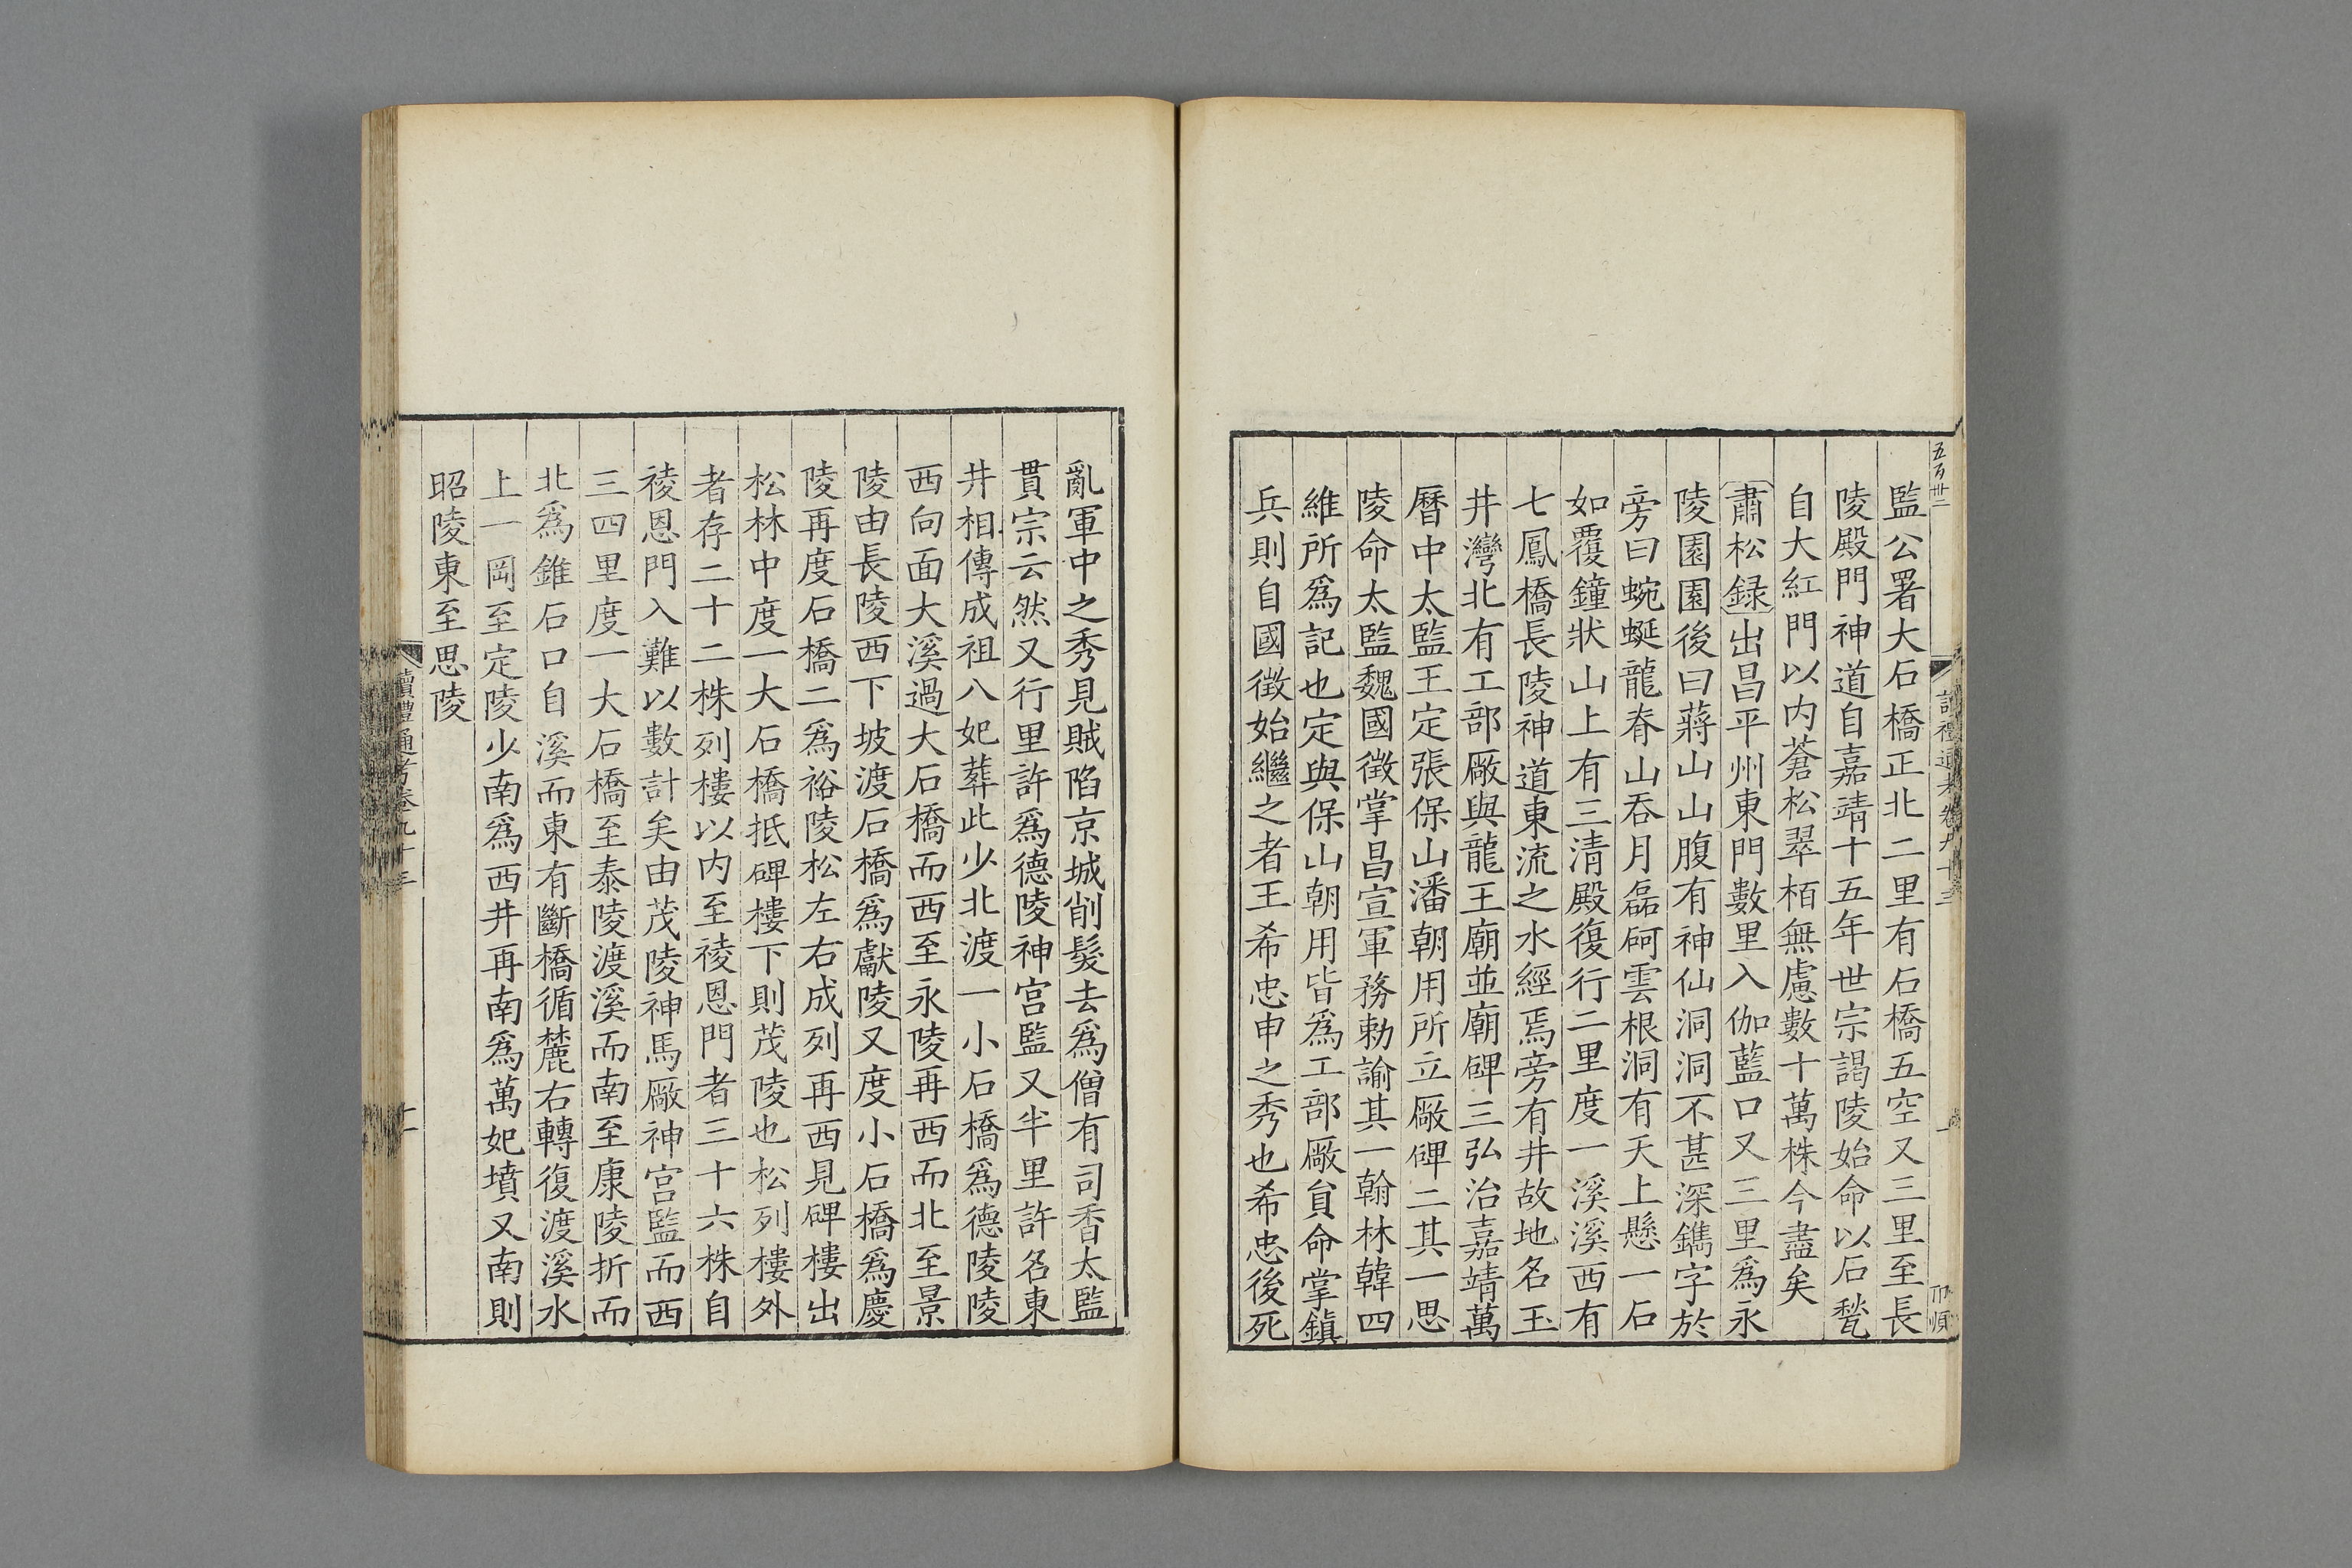 五百卅二
監公署大石橋正北二里有石橋五空又三里至長
陵殿門神道自嘉靖十五年世宗謁陵始命以石甃
自大紅門以内蒼松翠栢無慮數十萬株今盡矣
肅松録出昌平州東門數里入伽藍口又三里爲永
陵園園後曰蔣山山腹有神仙洞洞不甚深鐫字於
旁曰蜿蜒龍眷山吞月磊砢雲根洞有天上懸一石
如覆鐘狀山上有三清殿復行二里度一溪溪西有
七鳳橋長陵神道東流之水經焉旁有井故地名玉
井灣北有工部廠與龍王廟並廟碑三弘治嘉靖萬
曆中太監王定張保山潘朝用所立廠碑二其一思
陵命太監魏國徵掌昌宣軍務勅諭其一翰林韓四
維所爲記也定與保山朝用皆爲工部廠貟命掌鎮
兵則自國徵始繼之者王希忠申之秀也希忠後死
亂軍中之秀見賊陷京城削髮去爲僧有司香太監
貫宗云然又行里許爲德陵神宫監又半里許名東
井相傳成祖八妃葬此少北渡一小石橋爲德陵陵
西向面大溪過大石橋而西至永陵再西而北至景
陵由長陵西下坡渡石橋爲獻陵又度小石橋爲慶
陵再度石橋二爲裕陵松左右成列再西見碑樓出
松林中度一大石橋抵碑樓下則茂陵也松列樓外
者存二十二株列樓以内至祾恩門者三十六株自
祾恩門入難以數計矣由茂陵神馬廠神宫監而西
三四里度一大石橋至泰陵渡溪而南至康陵折而
北爲錐石口自溪而東有斷橋循麓右轉復渡溪水
上一岡至定陵少南爲西井再南爲萬妃墳又南則
昭陵東至思陵
讀禮通考卷九十三
十一